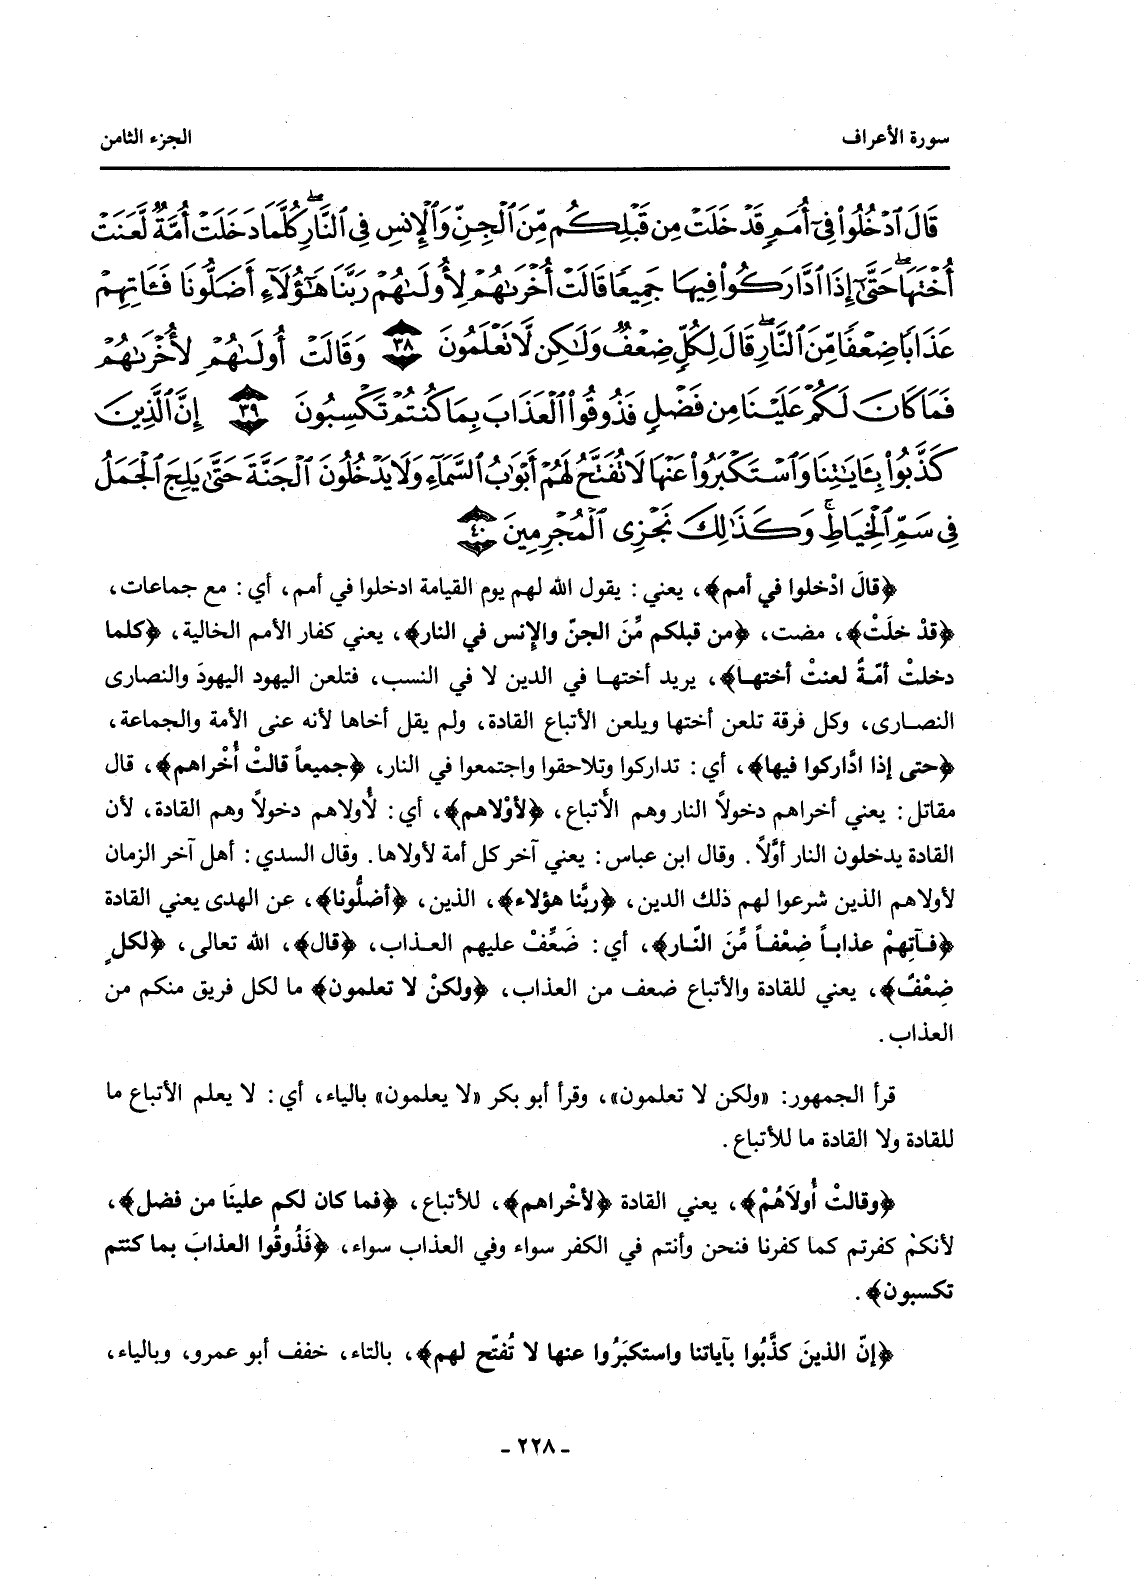 سورة الأعراف
الجزء الثامن
قَالَ ٱدْخُلُوا۟ فِىٓ أُمَمٍ قَدْ خَلَتْ مِن قَبْلِكُم مِّنَ ٱلْجِنِّ وَٱلْإِنسِ فِى ٱلنَّارِ ۖ كُلَّمَا دَخَلَتْ أُمَّةٌ لَّعَنَتْ
أُخْتَهَا ۖ حَتَّىٰٓ إِذَا ٱدَّارَكُوا۟ فِيهَا جَمِيعًا قَالَتْ أُخْرَىٰهُمْ لِأُولَىٰهُمْ رَبَّنَا هَٰٓؤُلَآءِ أَضَلُّونَا فَـَٔاتِهِمْ
عَذَابًا ضِعْفًا مِّنَ ٱلنَّارِ ۖ قَالَ لِكُلٍّ ضِعْفٌ وَلَٰكِن لَّا تَعْلَمُونَ ٣٨ وَقَالَتْ أُولَىٰهُمْ لِأُخْرَىٰهُمْ
فَمَا كَانَ لَكُمْ عَلَيْنَا مِن فَضْلٍ فَذُوقُوا۟ ٱلْعَذَابَ بِمَا كُنتُمْ تَكْسِبُونَ ٣٩ إِنَّ ٱلَّذِينَ
كَذَّبُوا۟ بِـَٔايَٰتِنَا وَٱسْتَكْبَرُوا۟ عَنْهَا لَا تُفَتَّحُ لَهُمْ أَبْوَٰبُ ٱلسَّمَآءِ وَلَا يَدْخُلُونَ ٱلْجَنَّةَ حَتَّىٰ يَلِجَ ٱلْجَمَلُ
فِى سَمِّ ٱلْخِيَاطِ ۚ وَكَذَٰلِكَ نَجْزِى ٱلْمُجْرِمِينَ ٤٠
﴿قالَ ادْخلوا في أمم﴾، يعني: يقول الله لهم يوم القيامة ادخلوا في أمم، أي: مع جماعات،
﴿قدْ خلَتْ﴾، مضت، ﴿من قبلكم مِّنَ الجنّ والإنس في النار﴾، يعني كفار الأمم الخالية، ﴿كلما
دخلتْ أمّةٌ لعنتْ أختها﴾، يريد أختها في الدين لا في النسب، فتلعن اليهود اليهودَ والنصارى
النصارى، وكل فرقة تلعن أختها ويلعن الأتباع القادة، ولم يقل أخاها لأنه عنى الأمة والجماعة،
﴿حتى إذا ادَّاركوا فيها﴾، أي: تداركوا وتلاحقوا واجتمعوا في النار، ﴿جميعاً قالتْ أُخْراهم﴾، قال
مقاتل: يعني أخراهم دخولاً النار وهم الأتباع، ﴿لأوْلاهم﴾، أي: لأُولاهم دخولاً وهم القادة، لأن
القادة يدخلون النار أوَّلاً. وقال ابن عباس: يعني آخر كل أمة لأولاها. وقال السدي: أهل آخر الزمان
لأولاهم الذين شرعوا لهم ذلك الدين، ﴿ربَّنا هؤلاء﴾، الذين، ﴿أضلُّونا﴾، عن الهدى يعني القادة
﴿فآتِهمْ عذاباً ضِعْفاً مِّنَ النّار﴾، أي: ضَعِّفْ عليهم العذاب، ﴿قال﴾، الله تعالى، ﴿لكلٍ
ضِعْفٌ﴾، يعني للقادة والأتباع ضعف من العذاب، ﴿ولكنْ لا تعلمون﴾ ما لكل فريق منكم من
العذاب.
قرأ الجمهور: «ولكن لا تعلمون»، وقرأ أبو بكر «لا يعلمون» بالياء، أي: لا يعلم الأتباع ما
للقادة ولا القادة ما للأتباع.
﴿وقالتْ أُولاَهُمْ﴾، يعني القادة ﴿لأخْراهم﴾، للأتباع، ﴿فما كان لكم علينَا من فضل﴾،
لأنكمْ كفرتم كما كفرنا فنحن وأنتم في الكفر سواء وفي العذاب سواء، ﴿فَذُوقُوا العذابَ بما كنتم
تكسبون﴾.
﴿إنّ الذينَ كذَّبُوا بآياتنا واستكبَرُوا عنها لا تُفتّح لهم﴾، بالتاء، خفف أبو عمرو، وبالياء،
- ٢٢٨ -